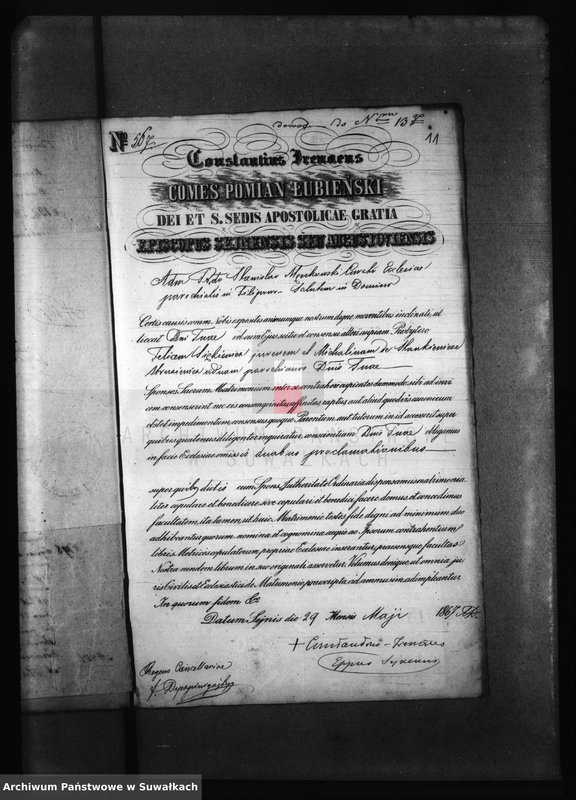 dowod do N 13
11
No 567.
Constantius Ireneus
COMES POMIAN ŁUBIEŃSKI
DEI ET S. SEDIS APOSTOLICAE GRATIA
EPISCOPUS SEJNENSIS SEU AUGUSTOVIENSIS
Adm Rndo Stanislao Curato Ecclesiae
parochialis in Filipow Salutem in Domino
Certis causis coram Nobis expositis animumque nostrum digne moventibus inclinati, ut
liceat Dni Tuae vel cum Ejus scitu et consensu alteri cuipiam Presbytero
Felicem juvenem et Michalinam de
viduam parochianos Dnis Tuae
Sponsos Sacrum Matrimonium inter se contrahere cupientes dummodo sibi ad invi
cem consenserint nec eis consanguinitas affinitas raptus aut aliud quodvis canonicum
obstet impedimentum consensusque Parentum aut tutorum in id accesserit super
quibus quatenus diligenter inquiratur conscientiam Dnis Tuae obligamus
in facie Ecclesiae omissis duabus proclamationibus
ARCHIWUM PAŃSTWOWE W SUWAŁKACH
super quibus dictis cum Spons Authoritate Ordinaria dispensamus matrimonia
liter copulare et benedicere sive copulari et benedici facere damus et concedimus
facultatem, ita tamen ut huic Matrimonio testes fide digni ad minimum duo
adhibeantur quorum nomina et cognomina aeque ac Ipsorum contrahentium
libris Metrices copulatorum propriae Ecclesiae inserantur, praesensque facultas
Nostra eundem librum in suo originali asservetur. Volumus denique ut omnia ju
ris Civilis et Ecclesiastici de Matrimonio praescripta ad amussim adimpleantur
In quorum fidem &
Datum Sejnis die 29 Mensis Maji 1867 Ao.
+ Constantius - Ireneus
Eppus Sejnensis
Regens Cancellariae
Archiwum Państwowe w Suwałkach